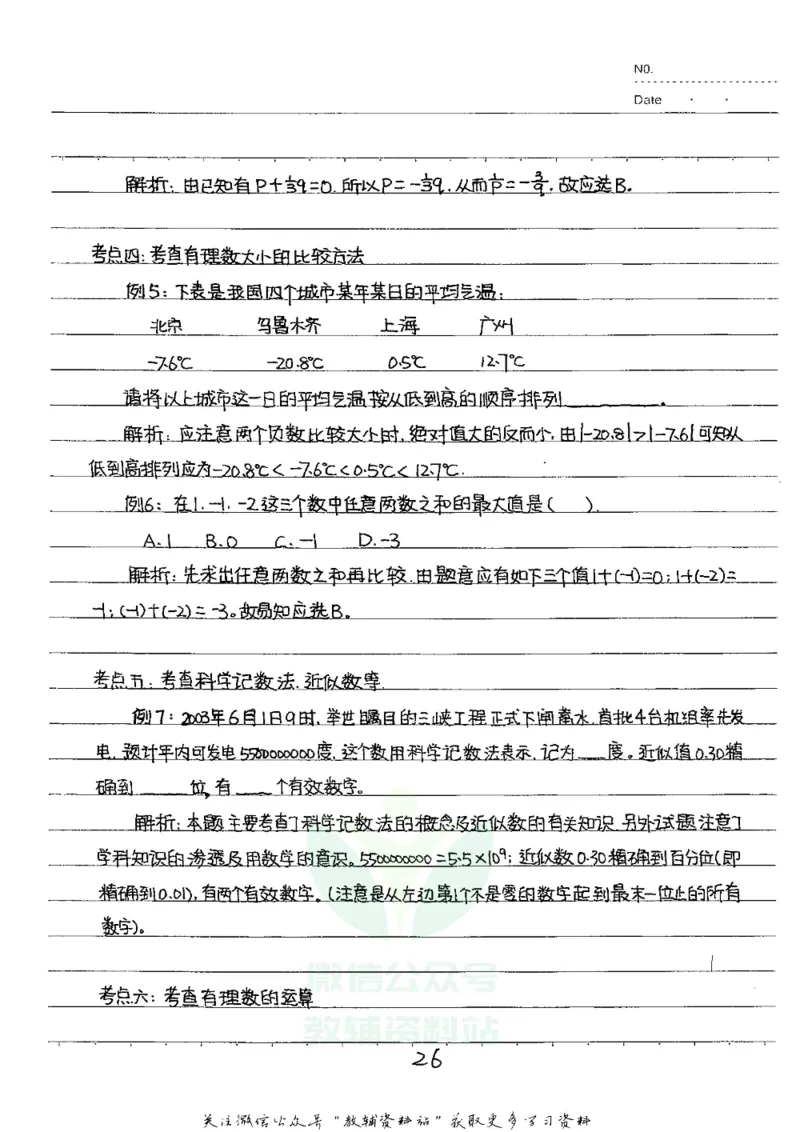 NO.
Date
解析:由已知有P+⅓q=0.所以P=-⅓q.从而 = .故应选B.
考点四:考查有理数大小的比较方法
例5:下表是我国四个城市某年某日的平均气温:
北京 乌鲁木齐 上海 广州
-7.6℃ -20.8℃ 0.5℃ 12.7℃
请将以上城市这一日的平均气温按从低到高的顺序排列________.
解析:应注意两个负数比较大小时,绝对值大的反而小.由|-20.8|>|-7.6|可知从
低到高排列应为-20.8℃<-7.6℃<0.5℃<12.7℃.
例6:在1.-1.-2这三个数中任意两数之和的最大值是( ).
A.1 B.0 C.-1 D.-3
解析:先求出任意两数之和再比较.由题意应有如下三个值1+(-1)=0;1+(-2)=
-1;(-1)+(-2)=-3。故易知应选B.
考点五:考查科学记数法.近似数等
例7:2003年6月1日9时,举世瞩目的三峡工程正式下闸蓄水.首批4台机组率先发
电.预计年内可发电5500000000度.这个数用科学记数法表示.记为___度。近似值0.30精
确到____位,有___个有效数字。
解析:本题主要考查了科学记数法的概念及近似数的有关知识.另外试题注意了
学科知识的渗透及用数学的意识。5500000000=5.5×10⁹;近似数0.30精确到百分位(即
精确到0.01),有两个有效数字。(注意是从左边第1个不是零的数字起到最末一位止的所有
数字)。
考点六:考查有理数的运算
微信公众号
教辅资料站
26
关注微信公众号“教辅资料站”获取更多学习资料